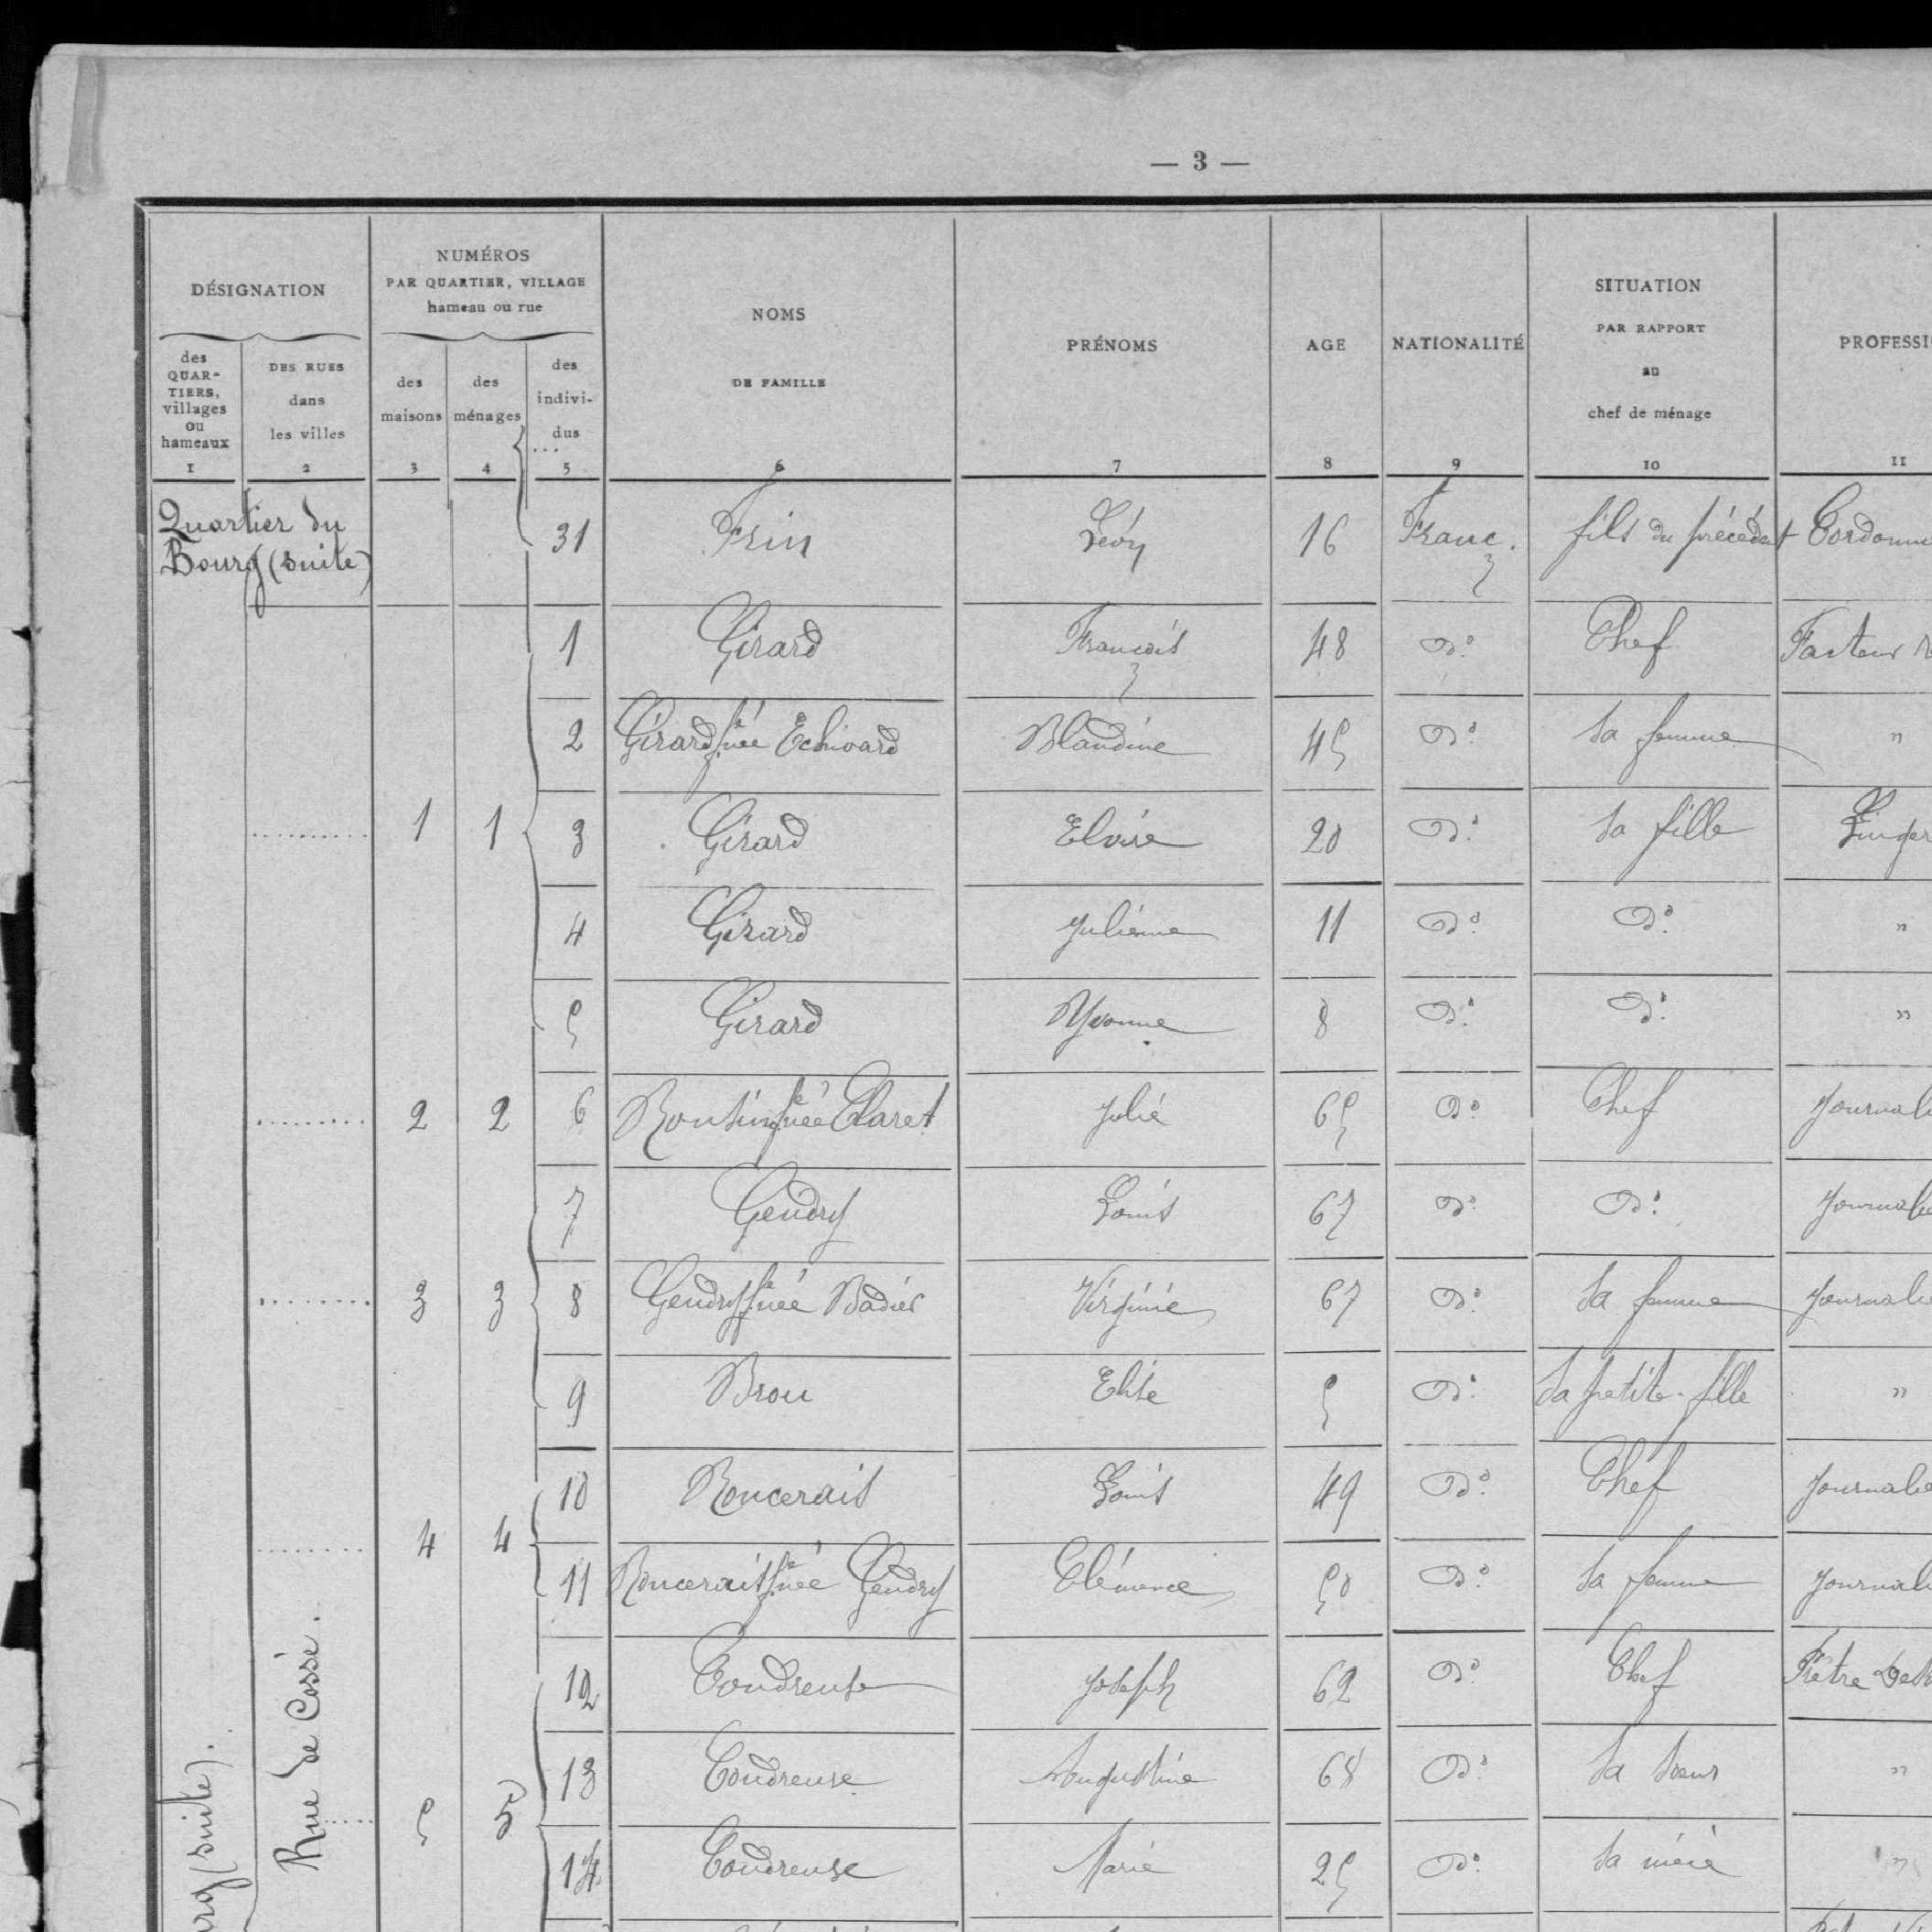 — 3 —
DÉSIGNATION
NUMÉROS
PAR QUARTIER, VILLAGE
hameau ou rue
des
QUAR-
TIERS,
villages
ou
hameaux
DES RUES
dans
les villes
des
maisons
des
ménages
des
indivi-
dus
NOMS
DE FAMILLE
PRÉNOMS
AGE
NATIONALITÉ
SITUATION
PAR RAPPORT
au
chef de ménage
PROFESSI
1 2 3 4 5 6 7 8 9 10 11
Quartier du
Bourg (suite)
31 Frin Léon 16 Franç. fils du précédent Cordonni
1 Girard François 48 Dº Chef Facteur
2 Girard fe née Echivard Blandine 45 Dº Sa femme "
1 1 3 Girard Elvire 20 Dº Sa fille Linger
4 Girard Julienne 11 Dº Dº "
5 Girard Yvonne 8 Dº Dº "
2 2 6 fe née Claret Julie 65 Dº Chef Journali
7 Gendry Louis 67 Dº Dº Journalie
3 3 8 Gendry fe née Badier Virginie 67 Dº Sa femme Journalie
9 Brou Elise 5 Dº Sa petite-fille "
10 Roncerais Louis 49 Dº Chef Journalie
4 4 11 Roncerais fe née Gendry Clémence 50 Dº Sa femme Journali
12 Coudreuse Joseph 62 Dº Chef Prêtre
13 Coudreuse Augustine 68 Dº Sa sœur "
5 5 14 Coudreuse Marie 25 Dº Sa nièce "
Rue de Cossé.
urg (suite).